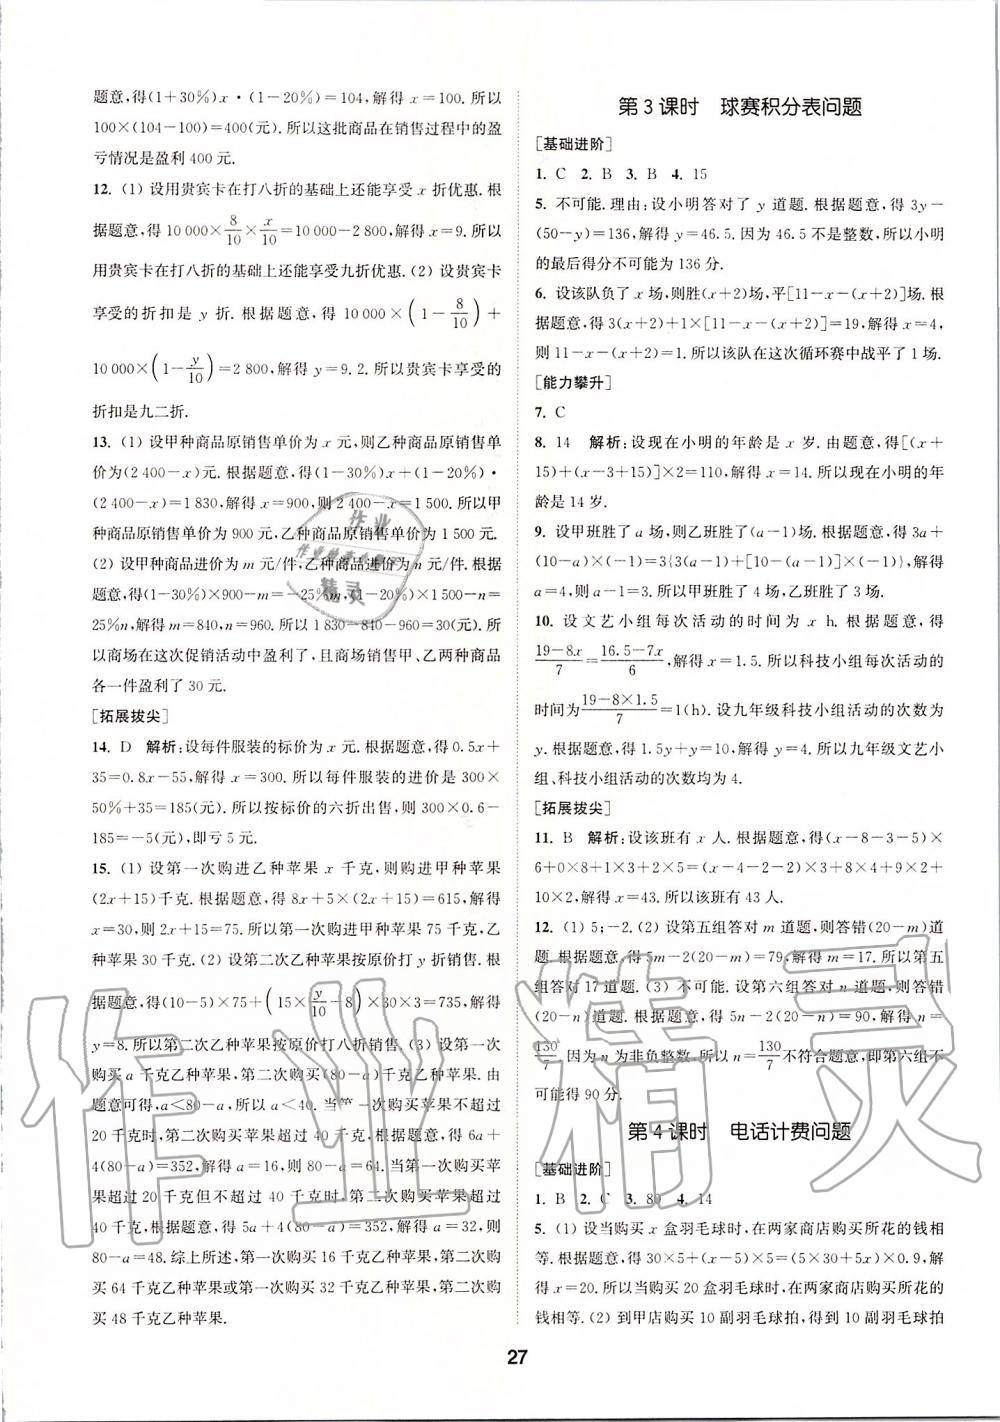 题意,得(1+30%)x·(1-20%)=104,解得 x=100. 所以
100×(104-100)=400(元). 所以这批商品在销售过程中的盈
亏情况是盈利 400 元.
12. (1) 设用贵宾卡在打八折的基础上还能享受 x 折优惠. 根
据题意,得 10 000×8/10×x/10=10 000-2 800,解得 x=9. 所以
用贵宾卡在打八折的基础上还能享受九折优惠. (2) 设贵宾卡
享受的折扣是 y 折. 根据题意,得 10 000×(1-8/10)+
10 000×(1-y/10)=2 800,解得 y=9.2. 所以贵宾卡享受的
折扣是九二折.
13. (1) 设甲种商品原销售单价为 x 元,则乙种商品原销售单价为
(2 400-x)元. 根据题意,得(1-30%)x+(1-20%)·
(2 400-x)=1 830,解得 x=900,则 2 400-x=1 500. 所以甲
种商品原销售单价为 900 元,乙种商品原销售单价为 1 500 元.
(2) 设甲种商品进价为 m 元/件,乙种商品进价为 n 元/件. 根据
题意,得(1-30%)×900-m=-25%m,(1-20%)×1 500-n=
25%n,解得 m=840,n=960. 所以 1 830-840-960=30(元). 所以
商场在这次促销活动中盈利了,且商场销售甲、乙两种商品
各一件盈利了 30 元.
[拓展拔尖]
14. D 解析:设每件服装的标价为 x 元. 根据题意,得 0.5x+
35=0.8x-55,解得 x=300. 所以每件服装的进价是 300×
50%+35=185(元). 所以按标价的六折出售,有 300×0.6-
185=-5(元),即亏 5 元.
15. (1) 设第一次购进乙种苹果 x 千克,则购进甲种苹果
(2x+15)千克. 根据题意,得 8x+5×(2x+15)=615,解得
x=30,则 2x+15=75. 所以购进甲种苹果 75 千克,乙
种苹果 30 千克. (2) 设第二次乙种苹果按原价打 y 折销售. 根
据题意,得(10-5)×75+(15×y/10-8)×30×3=735,解得
y=8. 所以第二次乙种苹果按原价打八折销售. (3) 设第一次
购买 a 千克乙种苹果,第二次购买(80-a)千克乙种苹果. 由
题意可得,a<80-a,所以 a<40. 当第一次购买苹果不超过
20 千克时,第二次购买苹果超过 40 千克. 根据题意,得 6a+
4(80-a)=352,解得 a=16,则 80-a=64. 当第一次购买
苹果超过 20 千克但不超过 40 千克时,第二次购买苹果超过
40 千克. 根据题意,得 5a+4(80-a)=352,解得 a=32,则
80-a=48. 综上所述,第一次购买 16 千克乙种苹果,第二次购
买 64 千克乙种苹果或第一次购买 32 千克乙种苹果,第二次购
买 48 千克乙种苹果.
第 3 课时 球赛积分表问题
[基础进阶]
1. C 2. B 3. B 4. 15
5. 不可能. 理由:设小明答对了 y 道题. 根据题意,得 3y-
(50-y)=136,解得 y=46.5. 因为 46.5 不是整数,所以小明
的最后得分不可能为 136 分.
6. 设该队负了 x 场,则胜(x+2)场,平[11-x-(x+2)]场. 根
据题意,得 3(x+2)+1×[11-x-(x+2)]=19,解得 x=4,
则 11-x-(x+2)=1. 所以该队在这次循环赛中战平了 1 场.
[能力攀升]
7. C
8. 14 解析:设现在小明的年龄是 x 岁. 由题意,得[(x+
15)+(x-3+15)]×2=110,解得 x=14. 所以现在小明的年
龄是 14 岁.
9. 设甲班胜了 a 场,则乙班胜了(a-1)场. 根据题意,得 3a+
(10-a)×(-1)=3{3(a-1)+[10-(a-1)]×(-1)},解得
a=4,则 a-1=3. 所以甲班胜了 4 场,乙班胜了 3 场.
10. 设文艺小组每次活动的时间为 x h. 根据题意,得
19-8x/7=16.5-7x/6,解得 x=1.5. 所以科技小组每次活动的
时间为19-8×1.5/7=1(h). 设九年级科技小组活动的次数为
y. 根据题意,得 1.5y+y=10,解得 y=4. 所以九年级文艺小
组、科技小组活动的次数均为 4.
[拓展拔尖]
11. B 解析:设该班有 x 人. 根据题意,得(x-8-3-5)×
6+0×8+1×3+2×5=(x-4-2-2)×3+8×4+9×2+
10×2,解得 x=43. 所以该班有 43 人.
12. (1) 5;-2. (2) 设第五组答对 m 道题,则答错(20-m)道
题. 根据题意,得 5m-2(20-m)=79,解得 m=17. 所以第五
组答对 17 道题. (3) 不可能. 设第六组答对 n 道题,则答错
(20-n)道题. 根据题意,得 5n-2(20-n)=90,解得 n=
130/7. 因为 n 为非负整数,所以 n=130/7不符合题意,即第六组不
可能得 90 分.
第 4 课时 电话计费问题
[基础进阶]
1. B 2. C 3. 80 4. 14
5. (1) 设当购买 x 盒羽毛球时,在两家商店购买所花的钱相
等. 根据题意,得 30×5+(x-5)×5=(5×30+5x)×0.9,解
得 x=20. 所以当购买 20 盒羽毛球时,在两家商店购买所花的
钱相等. (2) 到甲店购买 10 副羽毛球拍,得到 10 副羽毛球拍,
27
作业精灵